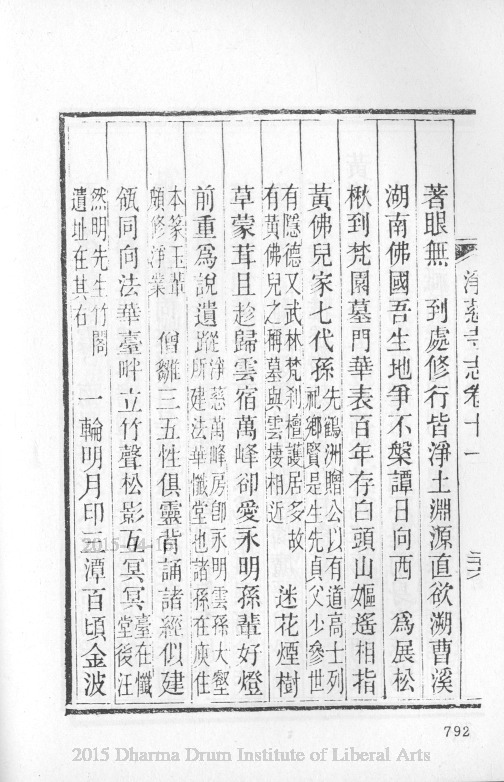 淨慈寺志卷十一
著眼無 到處修行皆淨土淵源直欲溯曹溪
湖南佛國吾生地爭不槃譚日向西 爲展松
楸到梵園墓門華表百年存白頭山嫗遙相指
黃佛兒家七代孫先鶴洲贈公以有道高士列
祀鄉賢是生先貞父少參世
有隱德又武林梵刹檀護居多故
有黃佛兒之稱墓與雲棲相近 迷花煙樹
草蒙茸且趁歸雲宿萬峰卻愛永明孫輩好燈
前重爲說遺蹤淨慈萬峰房卽永明雲孫大壑
所建法華懺堂也諸孫在庾住
本篆玉輩
頗修淨業 僧雛三五性俱靈背誦諸經似建
瓴同向法華臺畔立竹聲松影互冥冥臺在懺
堂後汪
然明先生竹閣
遺址在其右 一輪明月印三潭百頃金波
792
2015-4-16
2015 Dharma Drum Institute of Liberal Arts